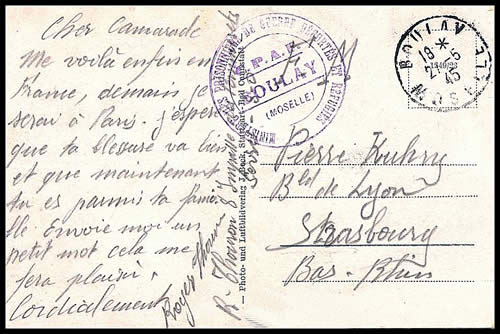 Cher Camarade
Me voilà enfin en
France, demain je
serai à Paris. j'espère
que ta blessure va bien
et que maintenant
tu es parmis ta famil
lle Envoie moi un
petit mot cela me
fera plaisir.
Cordialement
Roger
R. Thomson 8
Photo- und Luftbildverlag Lübeck, Stuttgart-Bad Cannstatt
PRISONNIERS DE GUERRE DÉPORTÉS ET RÉFUGIÉS
BOULAY
(MOSELLE)
F M
BOULAY
18 *
21-5
45
MOSELLE
Pierre Kuhry
Bld de Lyon
Strasbourg
Bas-Rhin